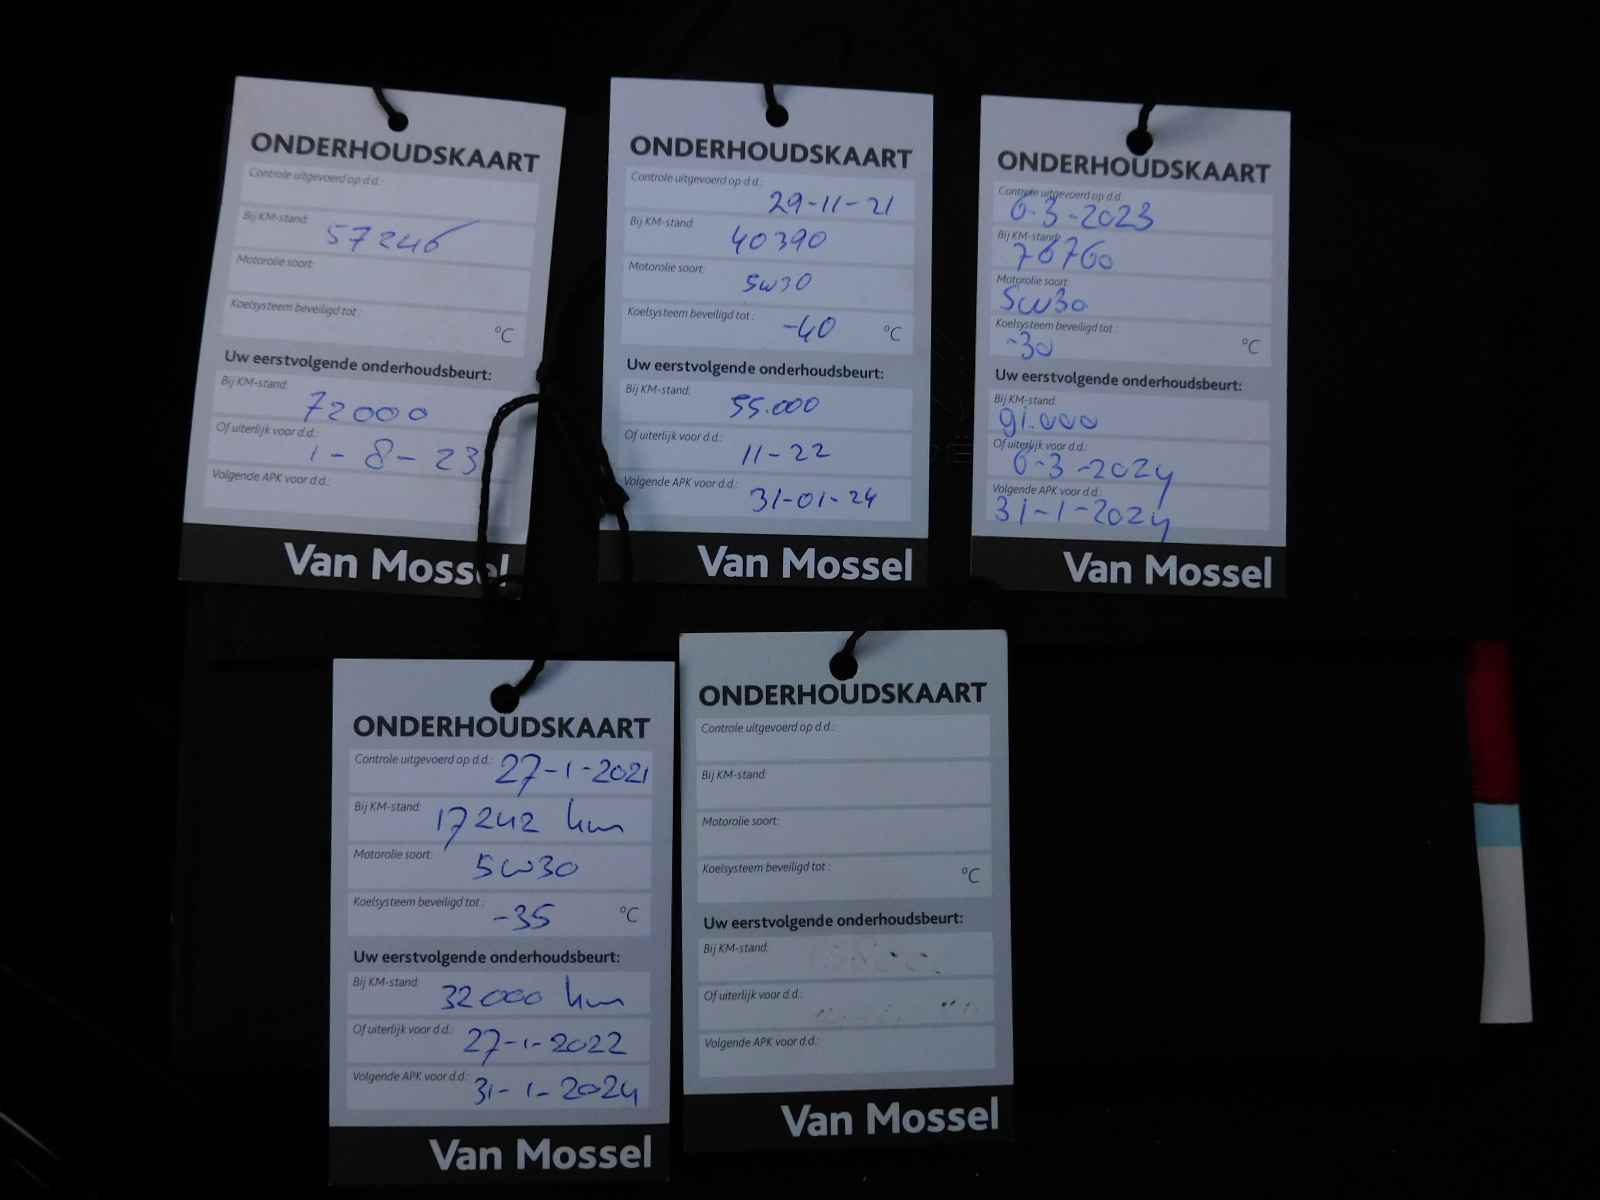 ONDERHOUDSKAART
Controle uitgevoerd op d.d.:
Bij KM-stand: 57246
Motorolie soort:
Koelsysteem beveiligd tot : °C
Uw eerstvolgende onderhoudsbeurt:
Bij KM-stand: 72000
Of uiterlijk voor d.d.: 1-8-23
Volgende APK voor d.d.:
Van Mossel
ONDERHOUDSKAART
Controle uitgevoerd op d.d.: 29-11-21
Bij KM-stand: 40390
Motorolie soort: 5w30
Koelsysteem beveiligd tot : -40 °C
Uw eerstvolgende onderhoudsbeurt:
Bij KM-stand: 55.000
Of uiterlijk voor d.d.: 11-22
Volgende APK voor d.d.: 31-01-24
Van Mossel
ONDERHOUDSKAART
Controle uitgevoerd op d.d.: 6-3-2023
Bij KM-stand: 76760
Motorolie soort: 5W30
Koelsysteem beveiligd tot : -30 °C
Uw eerstvolgende onderhoudsbeurt:
Bij KM-stand: 91.000
Of uiterlijk voor d.d.: 6-3-2024
Volgende APK voor d.d.: 31-1-2024
Van Mossel
ONDERHOUDSKAART
Controle uitgevoerd op d.d.: 27-1-2021
Bij KM-stand: 17242 km
Motorolie soort: 5W30
Koelsysteem beveiligd tot : -35 °C
Uw eerstvolgende onderhoudsbeurt:
Bij KM-stand: 32000 km
Of uiterlijk voor d.d.: 27-1-2022
Volgende APK voor d.d.: 31-1-2024
Van Mossel
ONDERHOUDSKAART
Controle uitgevoerd op d.d.:
Bij KM-stand:
Motorolie soort:
Koelsysteem beveiligd tot : °C
Uw eerstvolgende onderhoudsbeurt:
Bij KM-stand:
Of uiterlijk voor d.d.:
Volgende APK voor d.d.:
Van Mossel